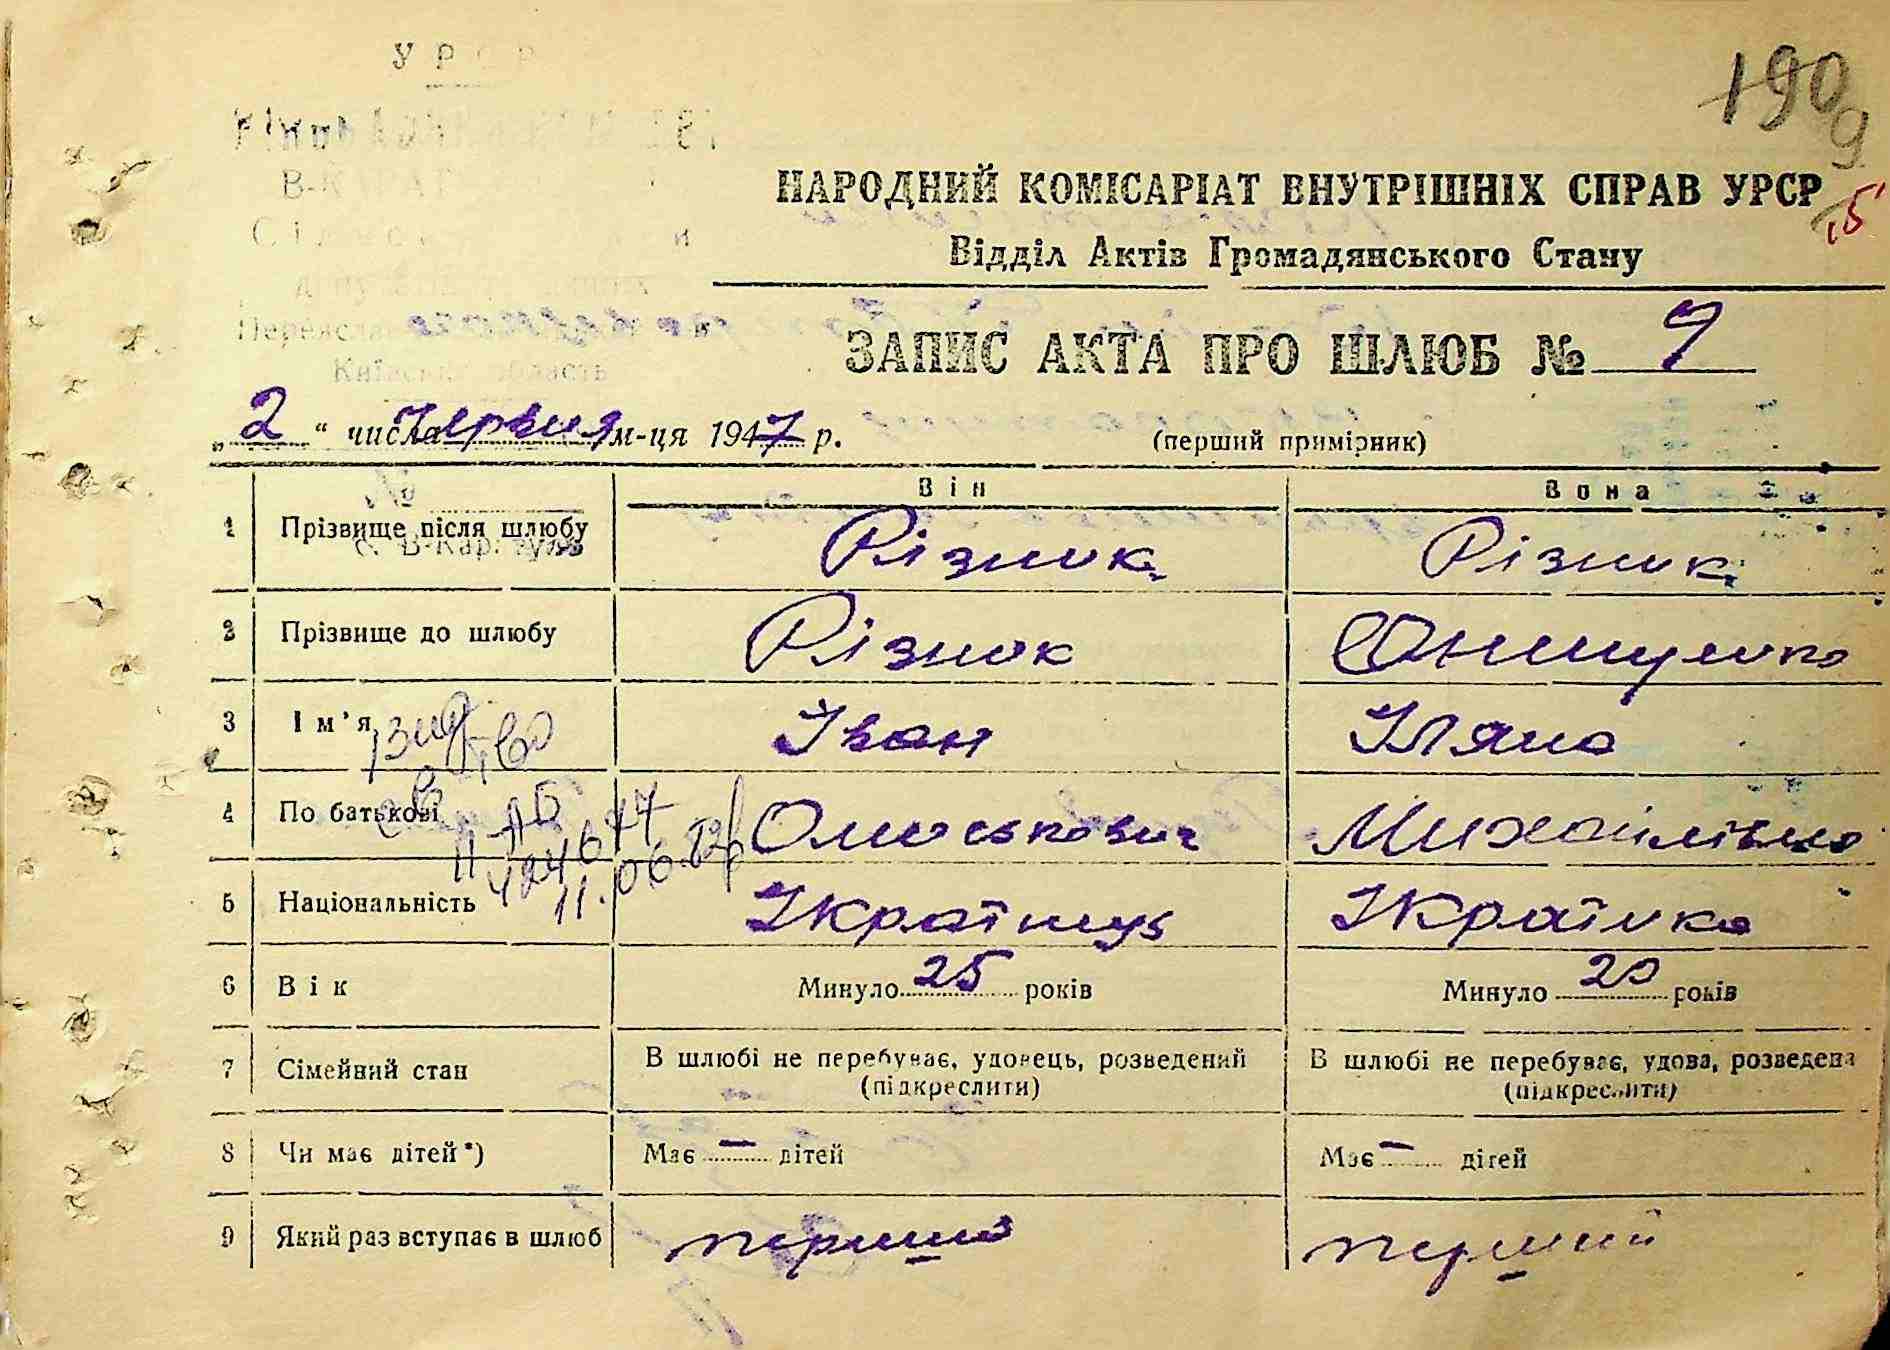 УРСР
190
9
15
НАРОДНИЙ КОМІСАРІАТ ВНУТРІШНІХ СПРАВ УРСР
Відділ Актів Громадянського Стану
ЗАПИС АКТА ПРО ШЛЮБ № 9
Київська область
„2“ числа Червня м-ця 1947 р.
(перший примірник)
Він Вона
1 Прізвище після шлюбу Різник Різник
с. В-Каратуль
2 Прізвище до шлюбу Різник Онищенко
3 Ім'я Іван Уляна
4 По батькові Омельянович Михайлівна
II-АБ
11.06.
5 Національність Українець Українка
6 Вік Минуло 25 років Минуло 20 років
7 Сімейний стан В шлюбі не перебуває, удовець, розведений В шлюбі не перебуває, удова, розведена
(підкреслити) (підкреслити)
8 Чи має дітей*) Має – дітей Має – дітей
9 Який раз вступає в шлюб перший перший